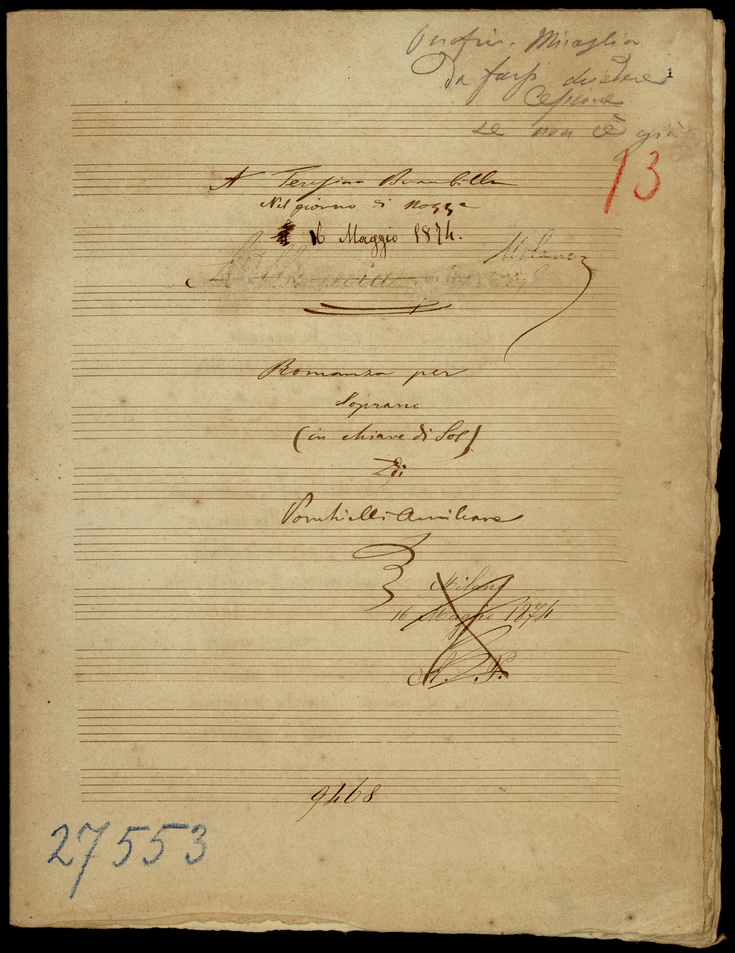 Miraglia
Da farsi
Cessione
se non è già
1
13
A Teresina Brambilla
Nel giorno di Nozze
16 Maggio 1874.
Milano
Romanza per
Soprano
(in chiave di Sol)
Di
Ponchielli Amilcare
Milano
16 Maggio 1874
A. P.
9468
27553